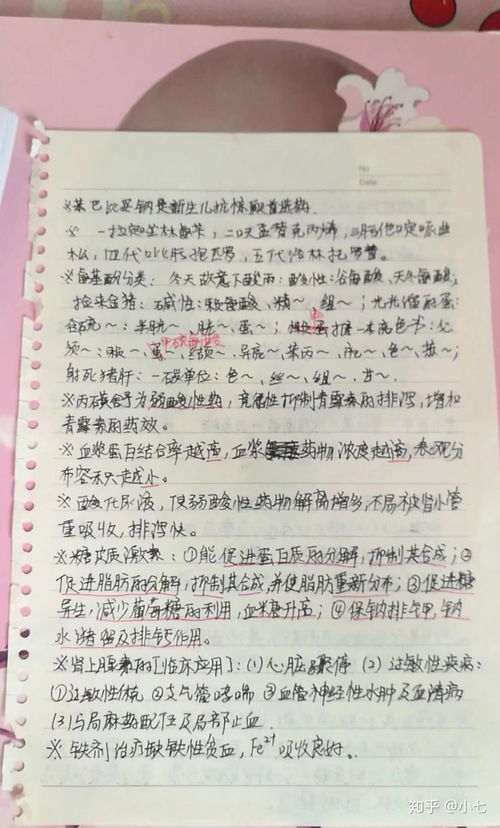 No
Date
※苯巴比妥钠是新生儿抗惊厥首选药.
※ 一拉短坐林每卡; 二呋孟替克丙烯,
松, 四代 吡 匹罗, 五代洛林 罗普。
※氨基酸分类: 冬天故意下酸雨: 酸性: 谷氨酸、天冬氨酸;
捡来金猪: 碱性: 赖氨酸、精~、组~;
含硫~: 半胱~、胱~、蛋~; 携 一本 色书: 必
须~: 赖~、蛋~、缬~、异亮~、苯丙~、亮~、色~、苏~;
甲硫氨酸
射死猪肝: 一碳单位: 色~、丝~、组~、甘~.
※丙磺舒为弱酸性药, 竞争性抑制青霉素的排泻, 增加
青霉素的药效。
※血浆蛋白结合率越高, 血浆药物浓度越高, 表观分
布容积越小。
※酸化尿液, 使弱酸性药物解离增多, 不易被肾小管
重吸收, 排泻快。
※糖皮质激素: ①能促进蛋白质的分解, 抑制其合成; ②
促进脂肪的分解, 抑制其合成, 并使脂肪重新分布; ③促进糖
异生, 减少葡萄糖的利用, 血糖升高; ④保钠排钾, 钠
水潴留及排钙作用。
※肾上腺素的[临床应用]: (1)心脏骤停 (2)过敏性疾病:
①过敏性休克 ②支气管哮喘 ③血管神经性水肿及血清病
(3)与局麻药配伍及局部止血
※铁剂治疗缺铁性贫血, Fe²⁺吸收良好。
知乎 @小七